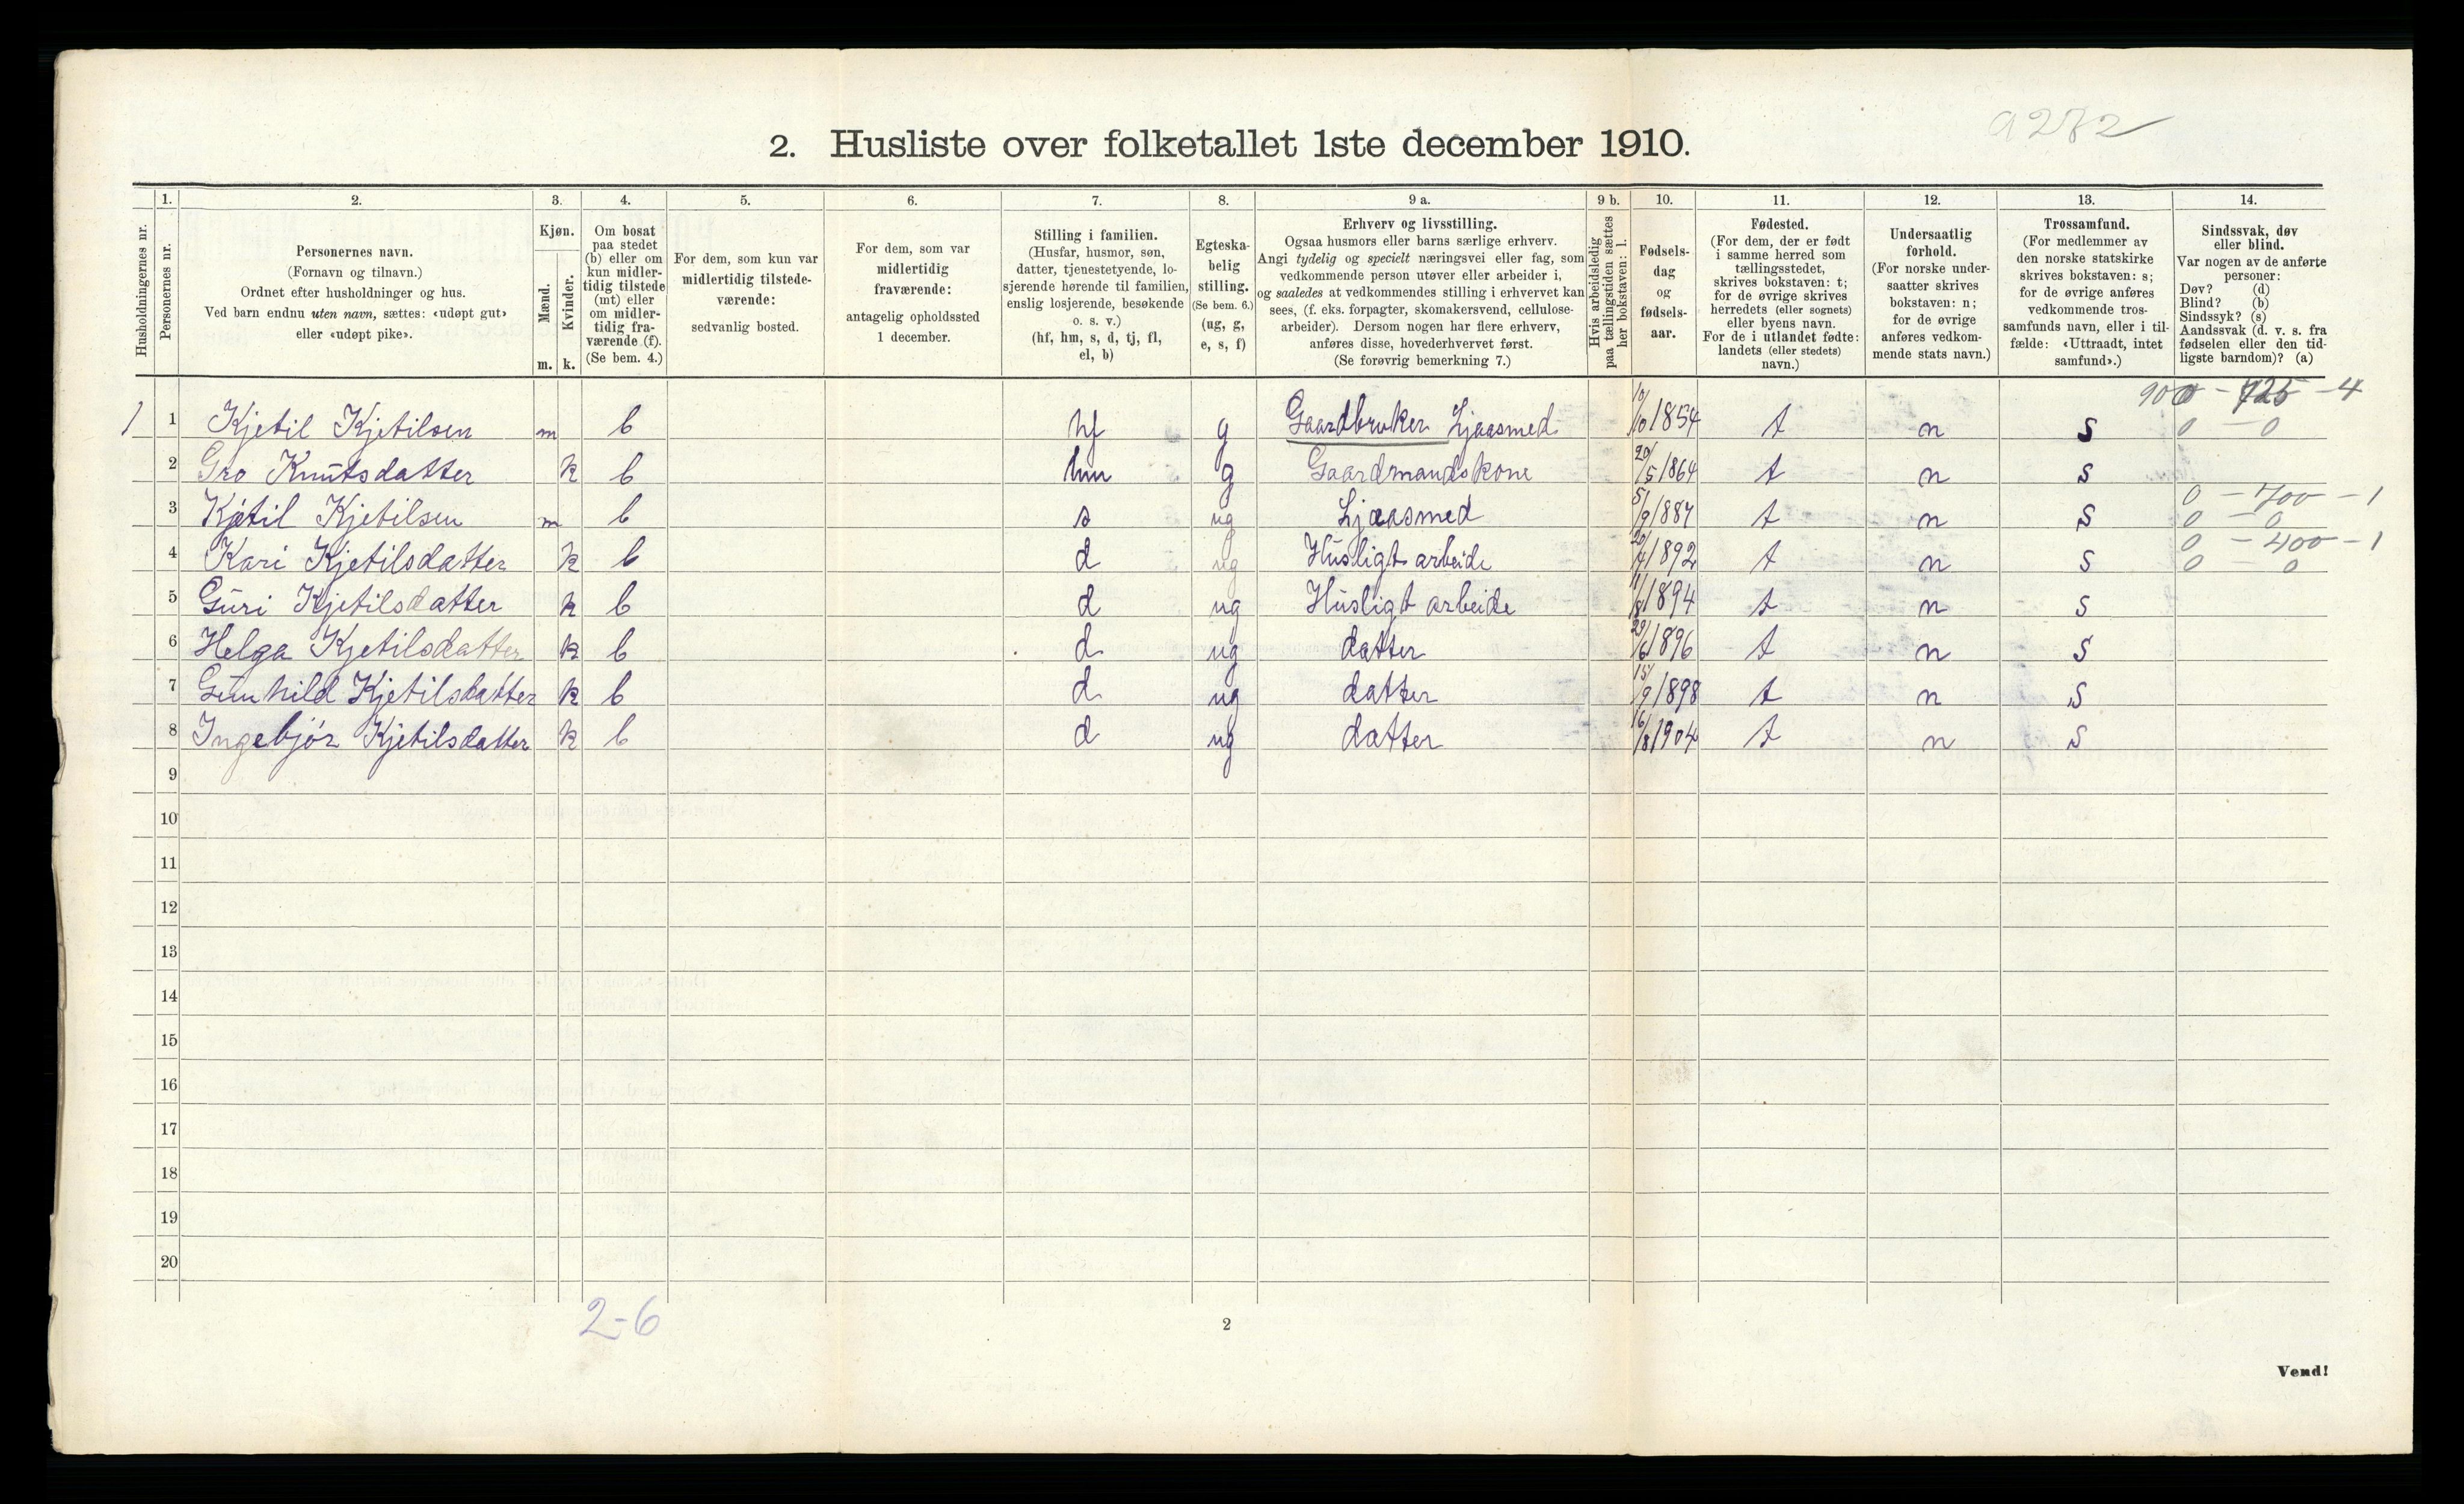 9272
2. Husliste over folketallet 1ste december 1910.
1. 2. 3. 4. 5. 6. 7. 8. 9 a. 9 b. 10. 11. 12. 13. 14.
Husholdningernes nr.
Personernes nr.
Personernes navn.
(Fornavn og tilnavn.)
Ordnet efter husholdninger og hus.
Ved barn endnu uten navn, sættes: «udøpt gut»
eller «udøpt pike».
Kjøn.
Mænd.
Kvinder.
m. k.
Om bosat
paa stedet
(b) eller om
kun midler-
tidig tilstede
(mt) eller
om midler-
tidig fra-
værende (f).
(Se bem. 4.)
For dem, som kun var
midlertidig tilstede-
værende:
sedvanlig bosted.
For dem, som var
midlertidig
fraværende:
antagelig opholdssted
1 december.
Stilling i familien.
(Husfar, husmor, søn,
datter, tjenestetyende, lo-
sjerende hørende til familien,
enslig losjerende, besøkende
o. s. v.)
(hf, hm, s, d, tj, fl,
el, b)
Egteska-
belig
stilling.
(Se bem. 6.)
(ug, g,
e, s, f)
Erhverv og livsstilling.
Ogsaa husmors eller barns særlige erhverv.
Angi tydelig og specielt næringsvei eller fag, som
vedkommende person utøver eller arbeider i,
og saaledes at vedkommendes stilling i erhvervet kan
sees, (f. eks. forpagter, skomakersvend, cellulose-
arbeider). Dersom nogen har flere erhverv,
anføres disse, hovederhvervet først.
(Se forøvrig bemerkning 7.)
Hvis arbeidsledig
paa tællingstiden sættes
her bokstaven: l.
Fødsels-
dag
og
fødsels-
aar.
Fødested.
(For dem, der er født
i samme herred som
tællingsstedet,
skrives bokstaven: t;
for de øvrige skrives
herredets (eller sognets)
eller byens navn.
For de i utlandet fødte:
landets (eller stedets)
navn.)
Undersaatlig
forhold.
(For norske under-
saatter skrives
bokstaven: n;
for de øvrige
anføres vedkom-
mende stats navn.)
Trossamfund.
(For medlemmer av
den norske statskirke
skrives bokstaven: s;
for de øvrige anføres
vedkommende tros-
samfunds navn, eller i til-
fælde: «Uttraadt, intet
samfund».)
Sindssvak, døv
eller blind.
Var nogen av de anførte
personer:
Døv? (d)
Blind? (b)
Sindssyk? (s)
Aandssvak (d. v. s. fra
fødselen eller den tid-
ligste barndom)? (a)
900 - 725 - 4
1 1 Kjetil Kjetilsen m b hf g Gaardbruker Ljaasmed 10/10 1854 t n s 0 - 0
2 Gro Knutsdatter k b hm g Gaardmandskone 20/5 1864 t n s
0 - 700 - 1
3 Kjetil Kjetilsen m b s ug Ljaasmed 5/9 1887 t n s 0 - 0
0 - 400 - 1
4 Kari Kjetilsdatter k b d ug Husligt arbeide 1892 t n s 0 - 0
5 Guri Kjetilsdatter k b d ug Husligt arbeide 11/8 1894 t n s
6 Helga Kjetilsdatter k b d ug datter 29/6 1896 t n s
7 Gunhild Kjetilsdatter k b d ug datter 15/9 1898 t n s
8 Ingebjør Kjetilsdatter k b d ug datter 16/8 1904 t n s
9
10
11
12
13
14
15
16
17
18
19
20
2-6
2
Vend!